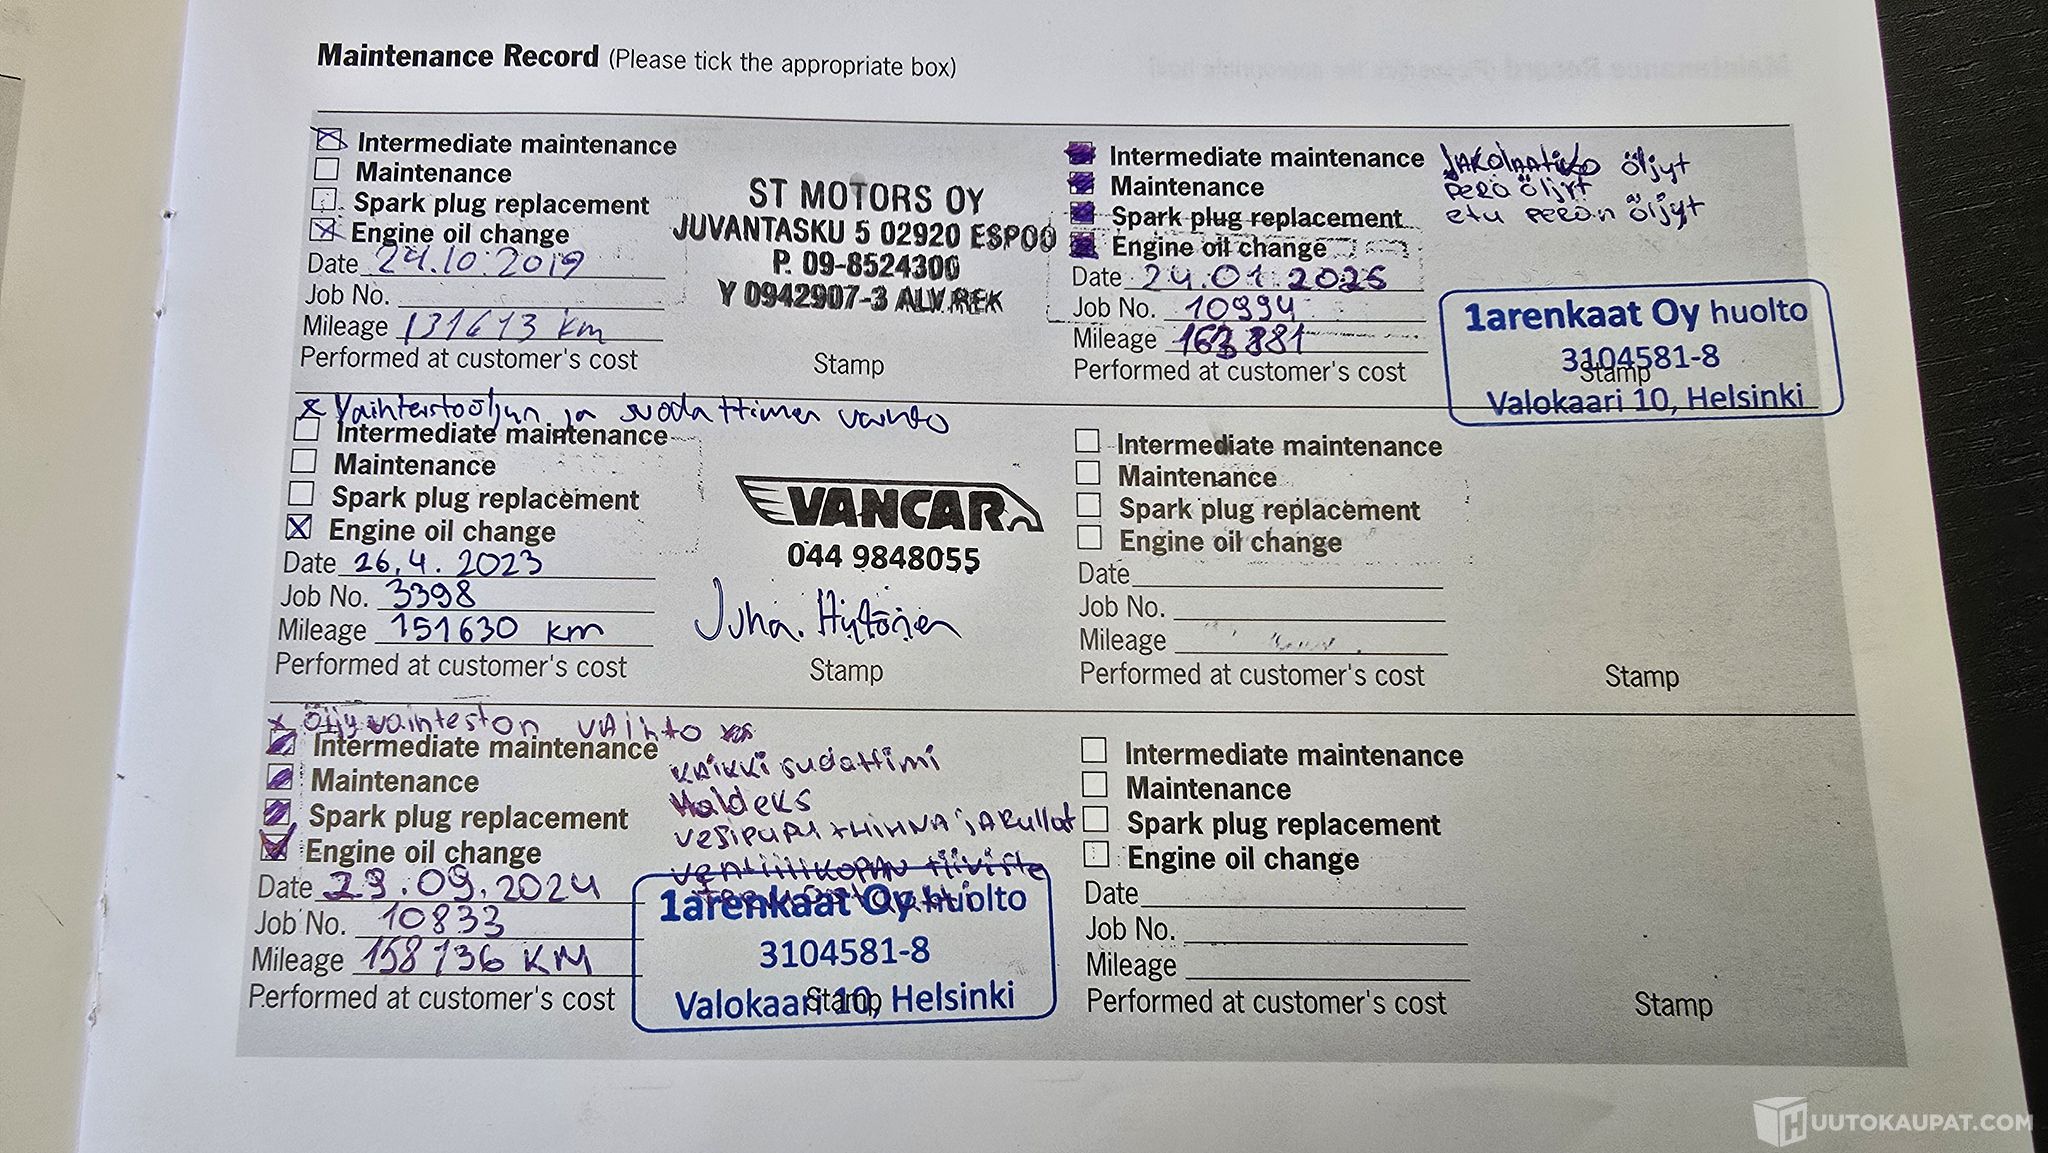 Maintenance Record (Please tick the appropriate box)
Intermediate maintenance
Maintenance
Spark plug replacement
Engine oil change
Date 24.10.2019
Job No.
Mileage 131613 km
Performed at customer's cost
ST MOTORS OY
JUVANTASKU 5 02920 ESPOO
P. 09-8524300
Y 0942907-3 ALV.REK
Stamp
x Vaihteistoöljyn ja suodattimen vaihto
Intermediate maintenance
Maintenance
Spark plug replacement
Engine oil change
Date 26.4.2023
Job No. 3398
Mileage 151630 km
Performed at customer's cost
VANCAR
044 9848055
Juha
Stamp
x Öljy vainteston vaihto
Intermediate maintenance
Maintenance
Spark plug replacement
Engine oil change
Date 23.09.2024
Job No. 10833
Mileage 158136 KM
Performed at customer's cost
KAIKKI sudattimi
Haldeks
vesipupu + HiHNA jA Rullat
ventiilikopan tiiviste
1arenkaat Oy huolto
3104581-8
Valokaari 10, Helsinki
Stamp
Intermediate maintenance
Maintenance
Spark plug replacement
Engine oil change
Date 24.01.2025
Job No. 10994
Mileage 163881
Performed at customer's cost
JAKOLAATIKO öljyt
perä öljyt
etu perän öljyt
1arenkaat Oy huolto
3104581-8
Stamp
Valokaari 10, Helsinki
Intermediate maintenance
Maintenance
Spark plug replacement
Engine oil change
Date
Job No.
Mileage
Performed at customer's cost
Stamp
Intermediate maintenance
Maintenance
Spark plug replacement
Engine oil change
Date
Job No.
Mileage
Performed at customer's cost
Stamp
HUUTOKAUPAT.COM